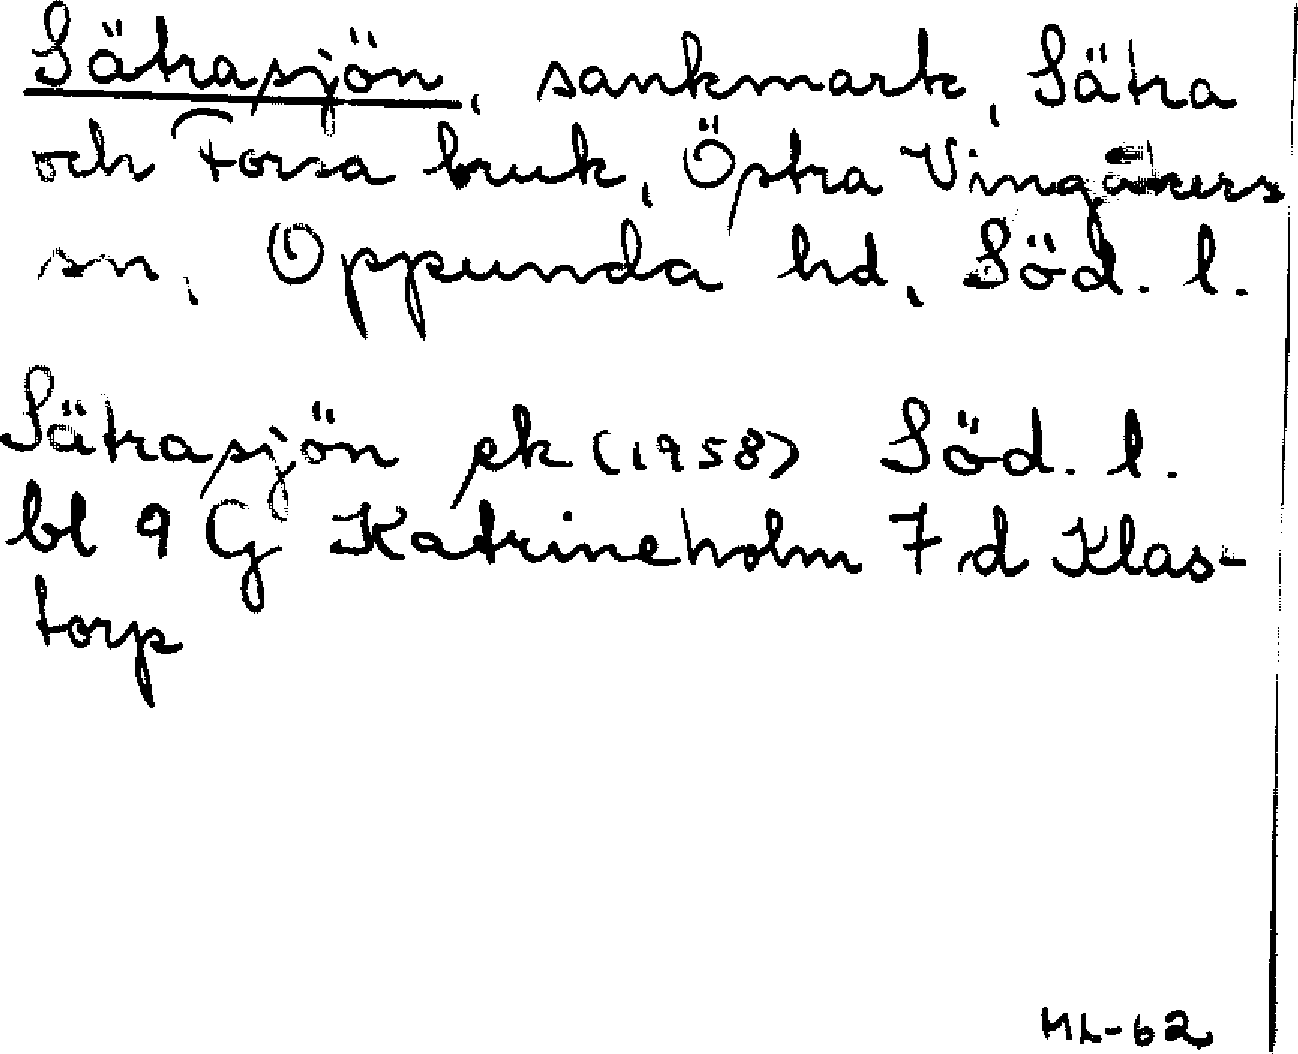 Sätrasjön, sankmark, Sätra
och Forsa bruk, Östra Vingåkers
sn, Oppunda hd, Söd. l.
Sätrasjön ek (1958) Söd. l.
bl 9 G Katrineholm 7 d Klas-
torp
ML-62